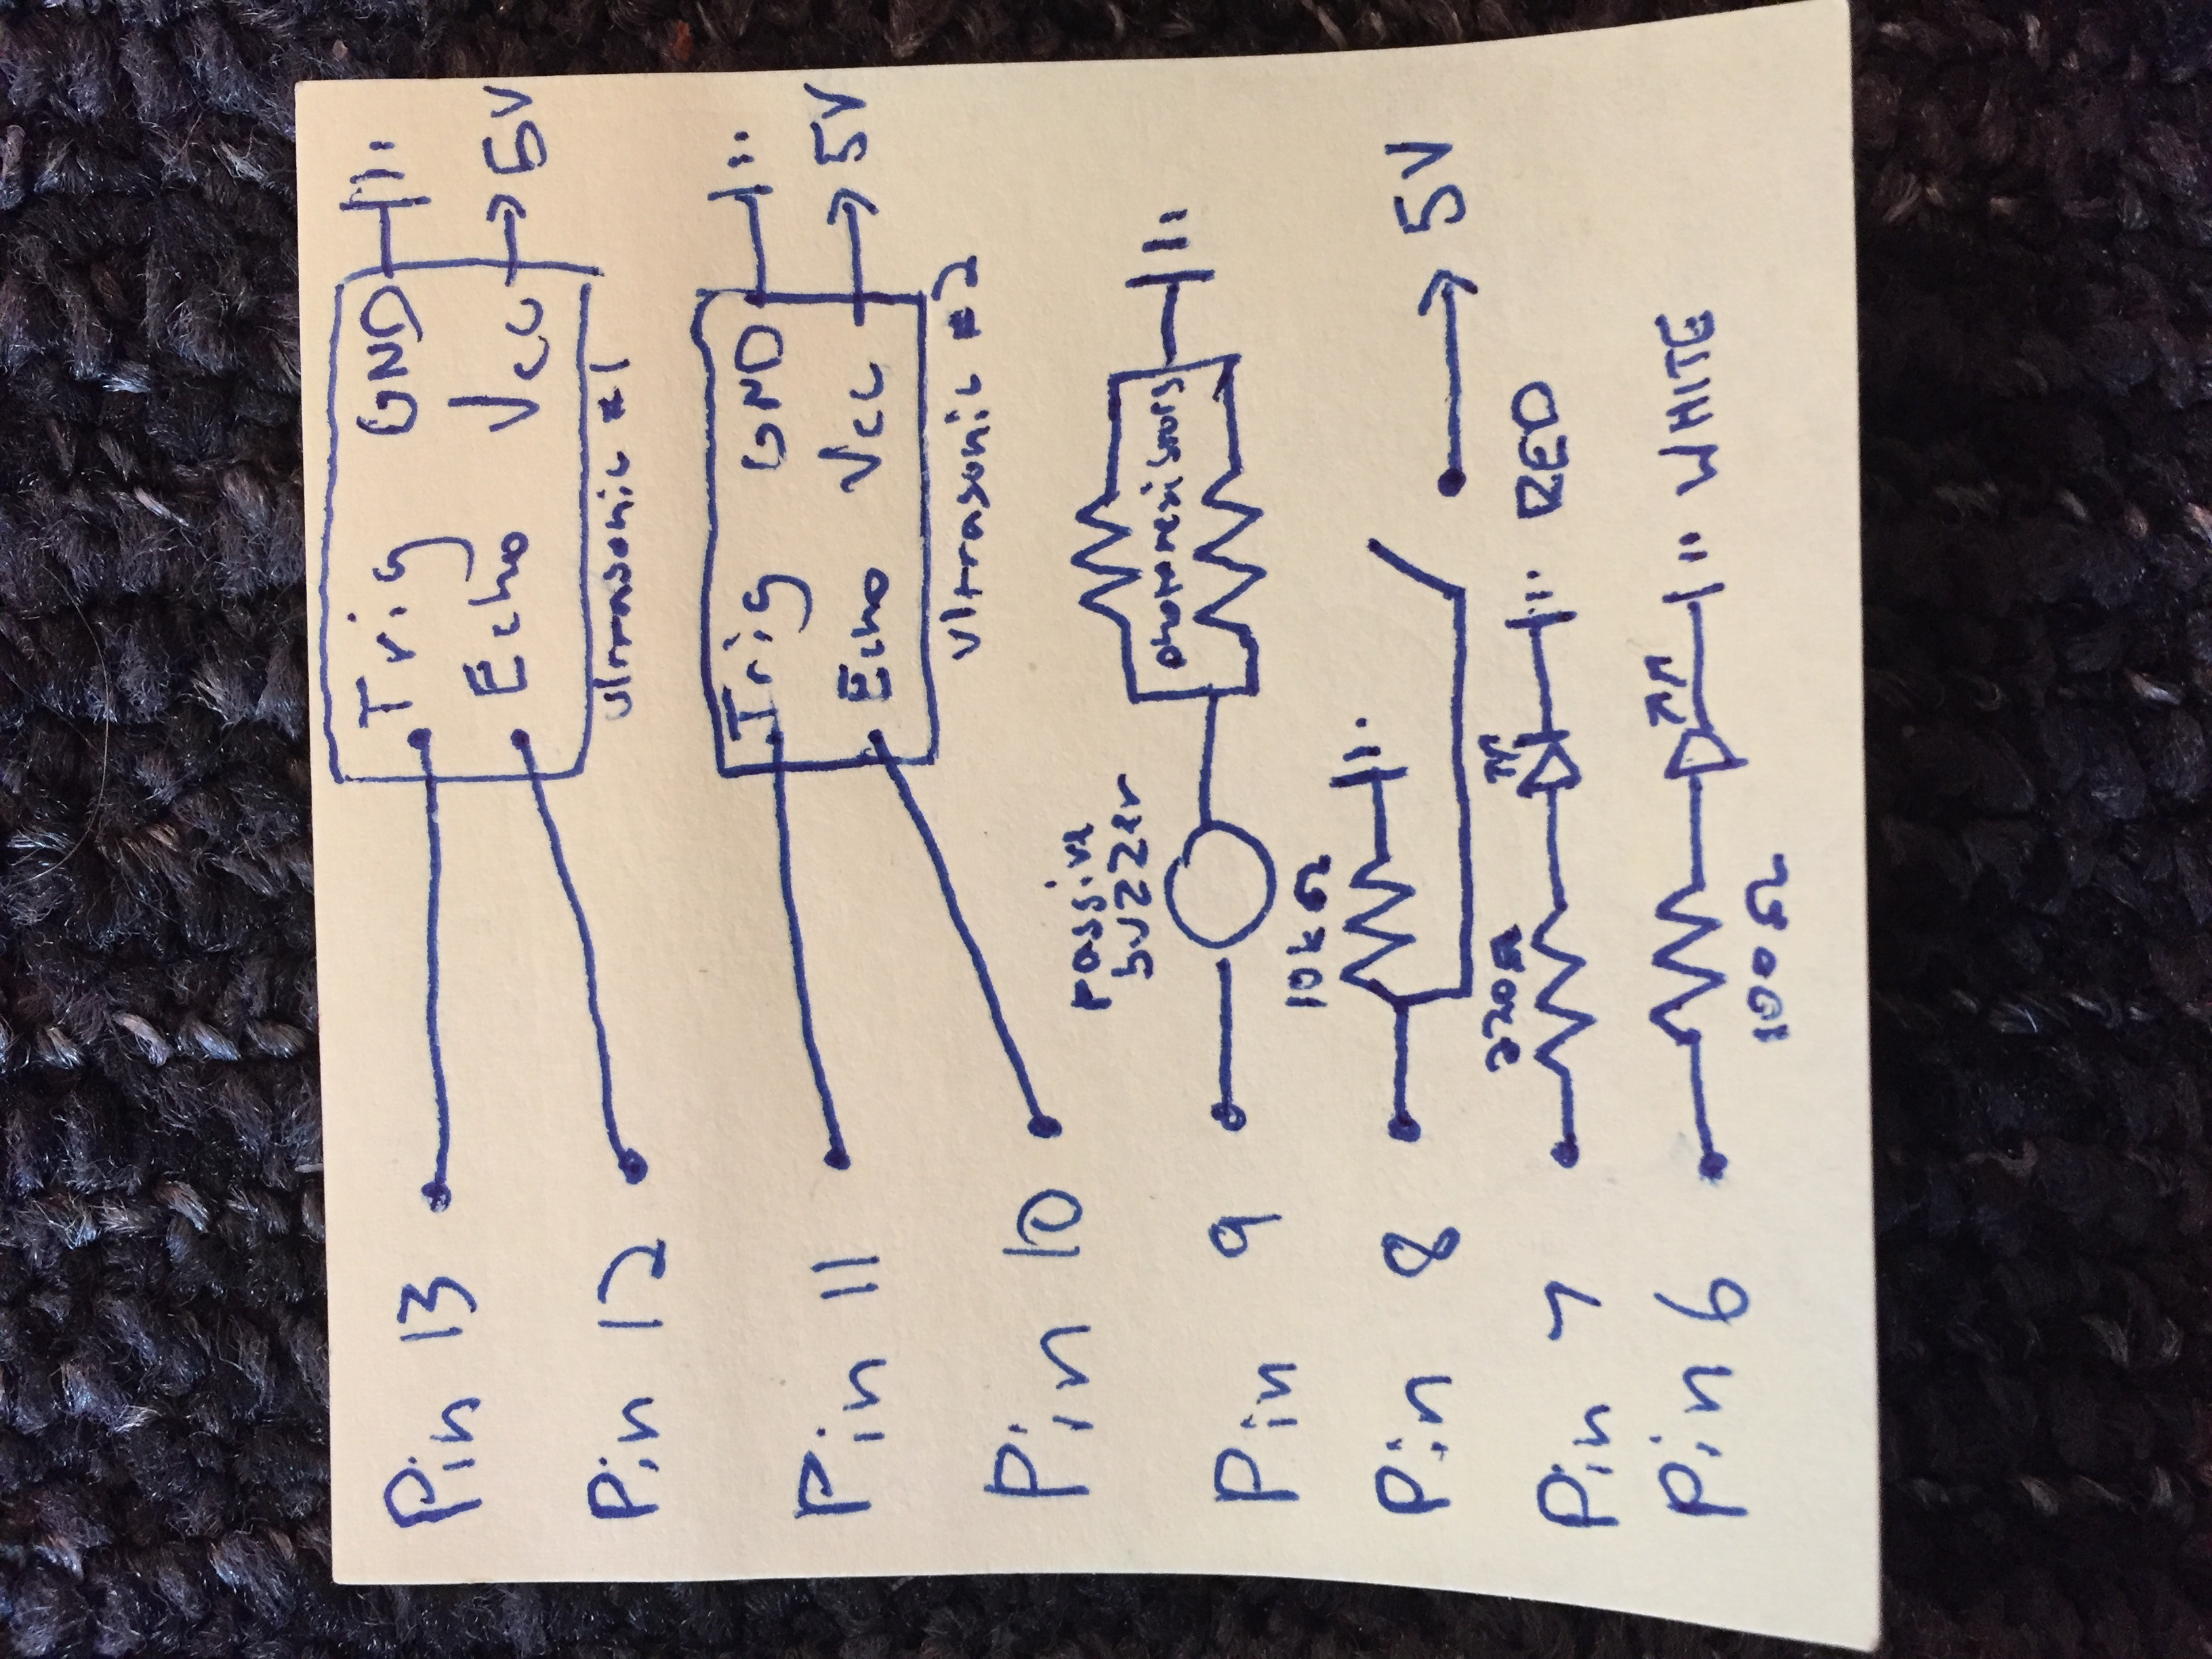 Pin 13
Trig GND
Echo Vcc 5V
Pin 12
ultrasonic #1
Pin 11
Trig GND
Echo Vcc 5V
ultrasonic #2
Pin 10
passive
buzzer
photoresistors
Pin 9
10kΩ
Pin 8
5V
220Ω
Pin 7
RED
Pin 6
WHITE
100Ω